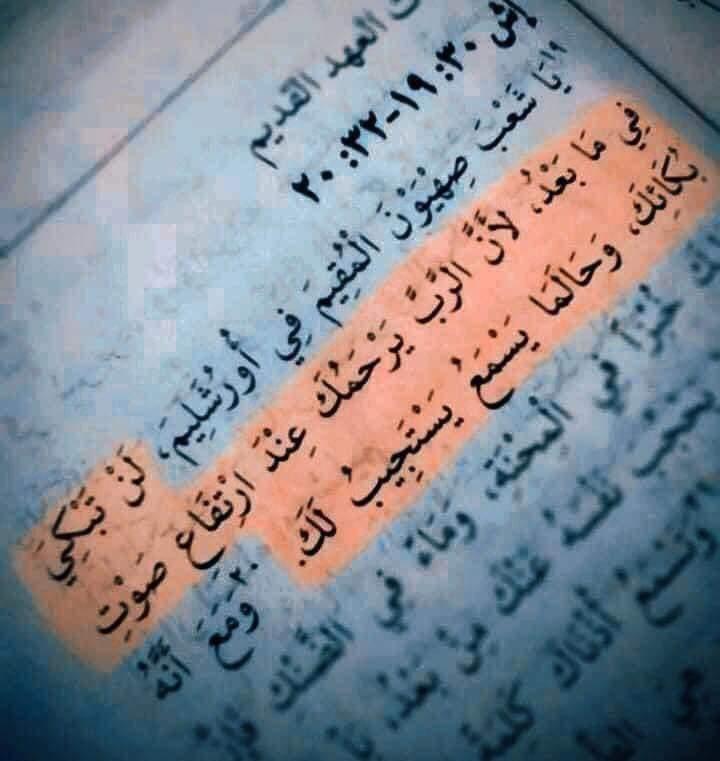 العهد القديم
إش ٣٠:١٩-٣٢:٢٠
١٩ يَا شَعْبَ صِهْيَوْنَ الْمُقِيمَ فِي أُورُشَلِيمَ، لَنْ تَبْكِيَ
فِي مَا بَعْدُ، لأَنَّ الرَّبَّ يَرْحَمُكَ عِنْدَ ارْتِفَاعِ صَوْتِ
بُكَائِكَ، وَحَالَمَا يَسْمَعُ يَسْتَجِيبُ لَكَ. ٢٠ وَمَعَ أَنَّهُ
خُبْزاً فِي الْمِحْنَةِ، وَمَاءً فِي الضَّنْكِ
نَفْسَهُ عَنْكَ مِنْ بَعْدُ،
وَتَسْمَعُ أُذُنَاكَ كَلِمَةً